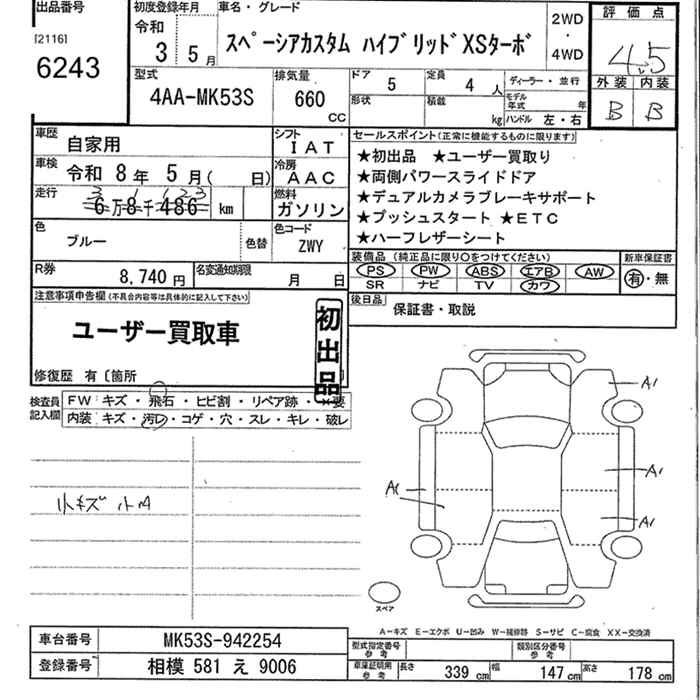 出品番号
[2116]
6243
初度登録年月
令和
3 5月
車名・グレード
スペーシアカスタム ハイブリッドXSターボ
2WD
・
4WD
評価点
4.5
外装 内装
B B
型式
4AA-MK53S
排気量
660
cc
ドア
5
定員
4 人
形状
積載
kg
ディーラー・並行
モデル年式 年
ハンドル 左・右
車歴
自家用
シフト
IAT
車検
令和 8年 5月( 日)
冷房
AAC
走行
6万8千486 km
3 1 123
燃料
ガソリン
色
ブルー
色替
色コード
ZWY
R券
8,740円
名変通知期限
月 日
セールスポイント(正常に機能するものに限ります)
★初出品 ★ユーザー買取り
★両側パワースライドドア
★デュアルカメラブレーキサポート
★プッシュスタート ★ETC
★ハーフレザーシート
装備品 (純正品に限り○をつけてください)
新車保証書
PS PW ABS エアB AW
SR ナビ TV カワ
有・無
後日品
保証書・取説
注意事項申告欄(不具合内容等は具体的に記入して下さい)
ユーザー買取車
初出品
修復歴 有〔箇所
検査員記入欄
FW キズ・飛石・ヒビ割・リペア跡・×要
内装 キズ・汚レ・コゲ・穴・スレ・キレ・破レ
小キズ 小A
A1
A1
A1
A1
スペア
A-キズ E-エクボ U-凹み W-補修跡 S-サビ C-腐食 XX-交換済
車台番号
MK53S-942254
登録番号
相模 581 え 9006
型式指定番号参考
類別区分番号参考
車庫証明用参考
長さ 339 cm 幅 147 cm 高さ 178 cm